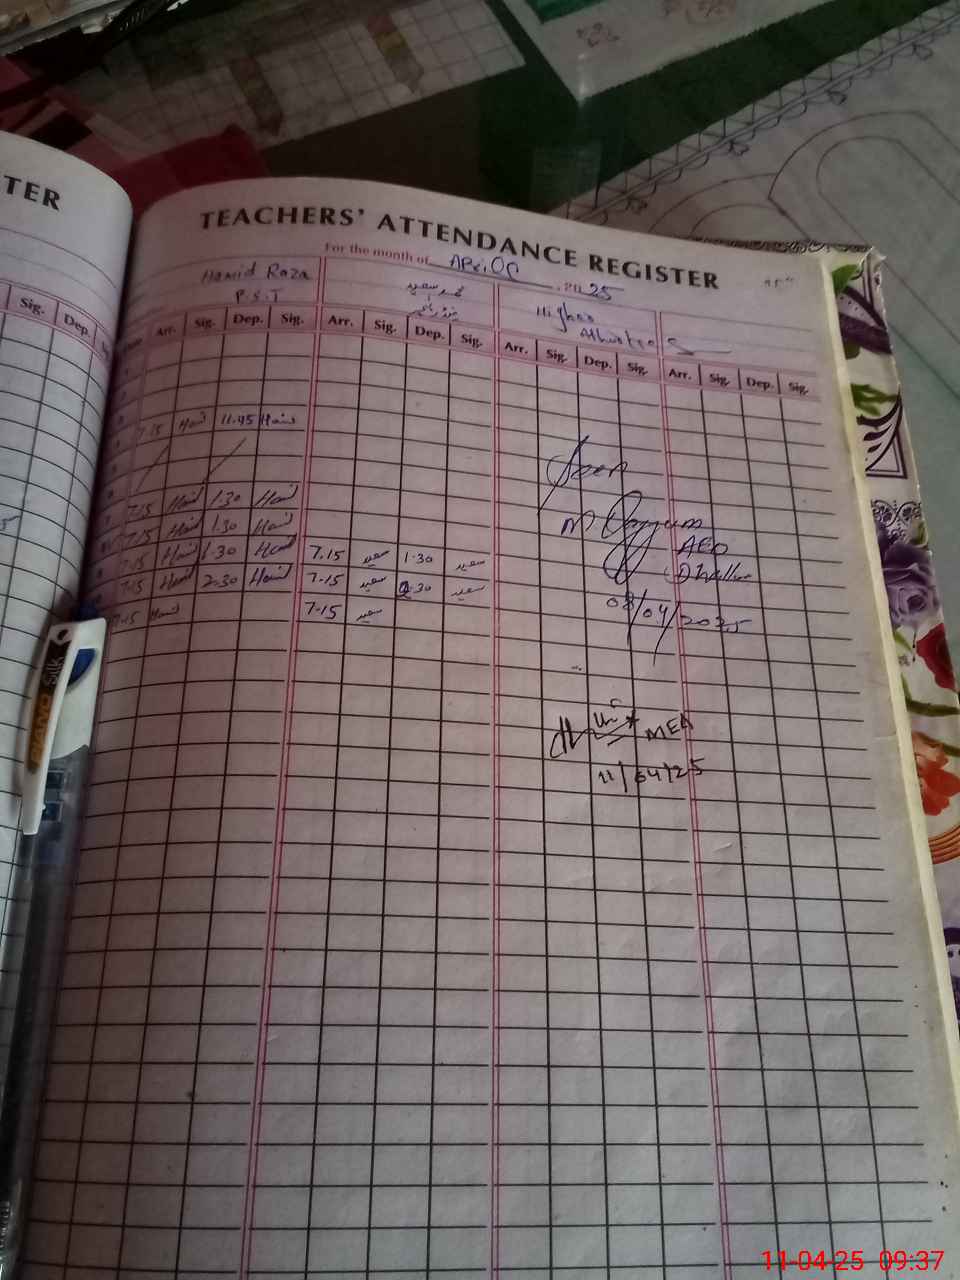 TER
Sig.
Dep.
TEACHERS' ATTENDANCE REGISTER
For the month of APriol 2025
Hamid Raza
P.S.T
محمد سعید
Arr. Sig. Dep. Sig. Arr. Sig. Dep. Sig. Arr. Sig. Dep. Sig. Arr. Sig. Dep. Sig.
7.15 Hamid 11.45 Hamid
7.15 Hamid 1.30 Hamid
7.15 Hamid 1.30 Hamid
7.15 Hamid 1.30 Hamid 7.15 سعید 1.30 سعید
7.15 Hamid 2.30 Hamid 7.15 سعید 2.30 سعید
7.15 Hamid 7.15 سعید
Seen
M Qayyum
AEO
08/04/2025
MEA
11/04/25
PIANO
Silk
11-04-25 09:37